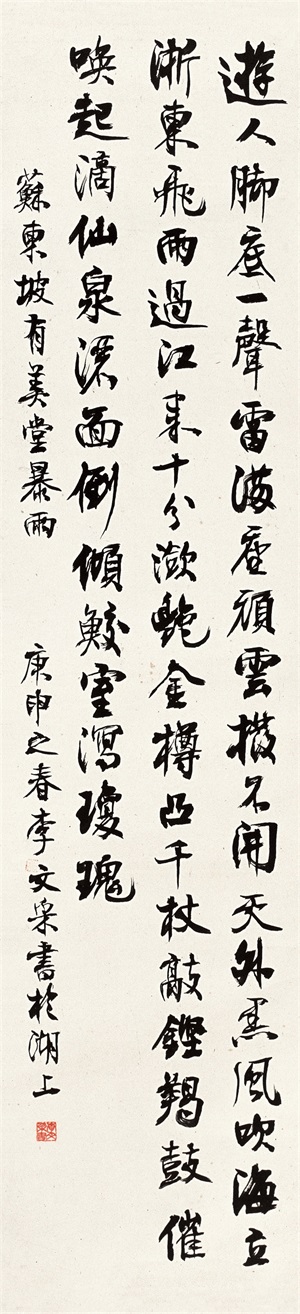 遊人脚底一聲雷滿座頑雲撥不開天外黑風吹海立
浙東飛雨過江來十分瀲灔金樽凸千杖敲鏗羯鼓催
喚起謫仙泉洒面倒傾鮫室瀉瓊瑰
蘇東坡有美堂暴雨 庚申之春李文采書於湖上